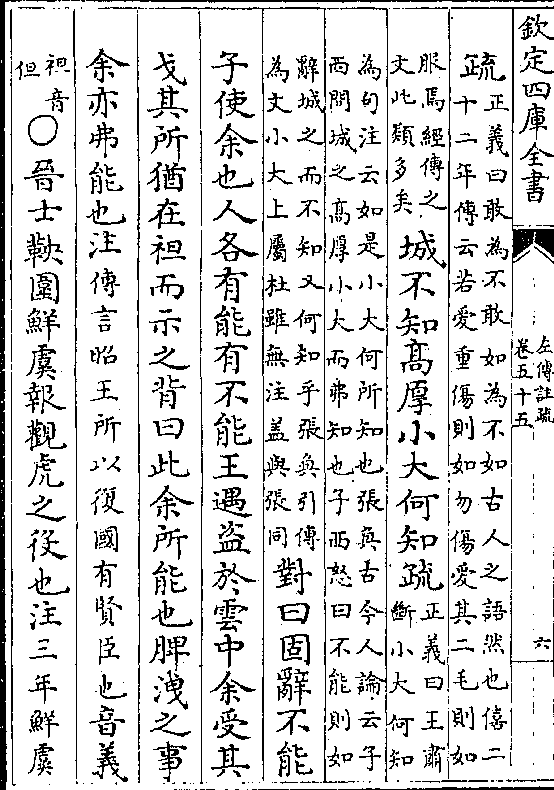 欽定四庫全書
左傳註疏
卷五十五
六
疏
正義曰敢為不敢如為不如古人之語然也僖二
十二年傳云若愛重傷則如勿傷愛其二毛則如
服焉經傳之
文此類多矣
城不知髙厚小大何知疏
正義曰王肅
斷小大何知
為句注云如是小大何所知也張奐古今人論云子
西問城之髙厚小大而弗知也子西怒曰不能則如
辭城之而不知又何知乎張奐引傳
為文小大上屬杜雖無注蓋與張同
對曰固辭不能
子使余也人各有能有不能王遇盜於雲中余受其
戈其所猶在袒而示之背曰此余所能也脾洩之事
余亦弗能也注傳言昭王所以復國有賢臣也音義
袒音
但
○晉士鞅圍鮮虞報觀虎之役也注三年鮮虞